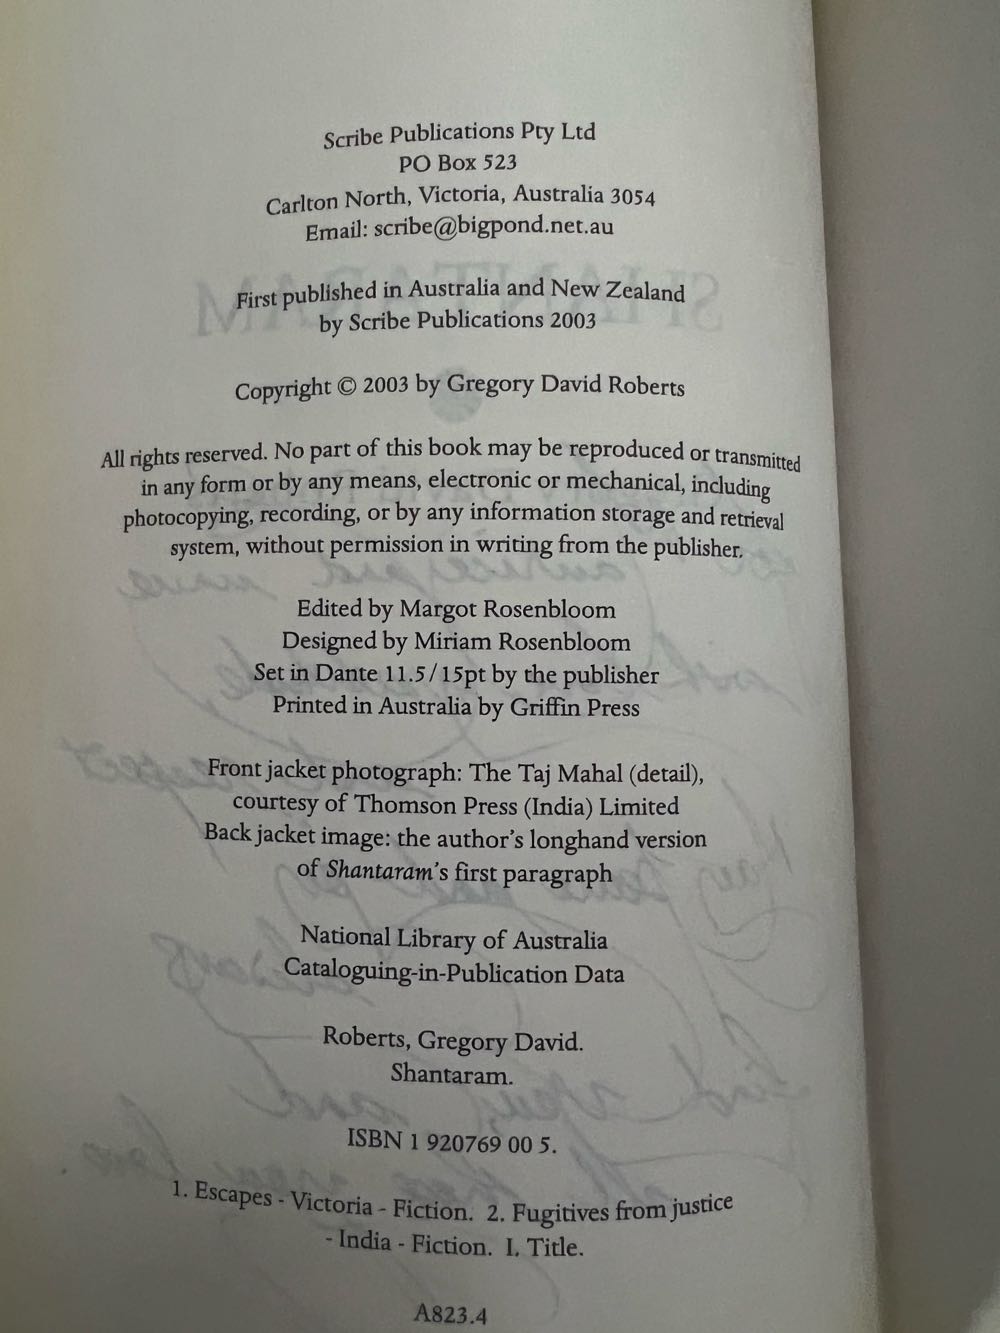 Scribe Publications Pty Ltd
PO Box 523
Carlton North, Victoria, Australia 3054
Email: scribe@bigpond.net.au
First published in Australia and New Zealand
by Scribe Publications 2003
Copyright © 2003 by Gregory David Roberts
All rights reserved. No part of this book may be reproduced or transmitted
in any form or by any means, electronic or mechanical, including
photocopying, recording, or by any information storage and retrieval
system, without permission in writing from the publisher.
Edited by Margot Rosenbloom
Designed by Miriam Rosenbloom
Set in Dante 11.5/15pt by the publisher
Printed in Australia by Griffin Press
Front jacket photograph: The Taj Mahal (detail),
courtesy of Thomson Press (India) Limited
Back jacket image: the author's longhand version
of Shantaram's first paragraph
National Library of Australia
Cataloguing-in-Publication Data
Roberts, Gregory David.
Shantaram.
ISBN 1 920769 00 5.
1. Escapes - Victoria - Fiction. 2. Fugitives from justice
- India - Fiction. I. Title.
A823.4
SHANTARAM